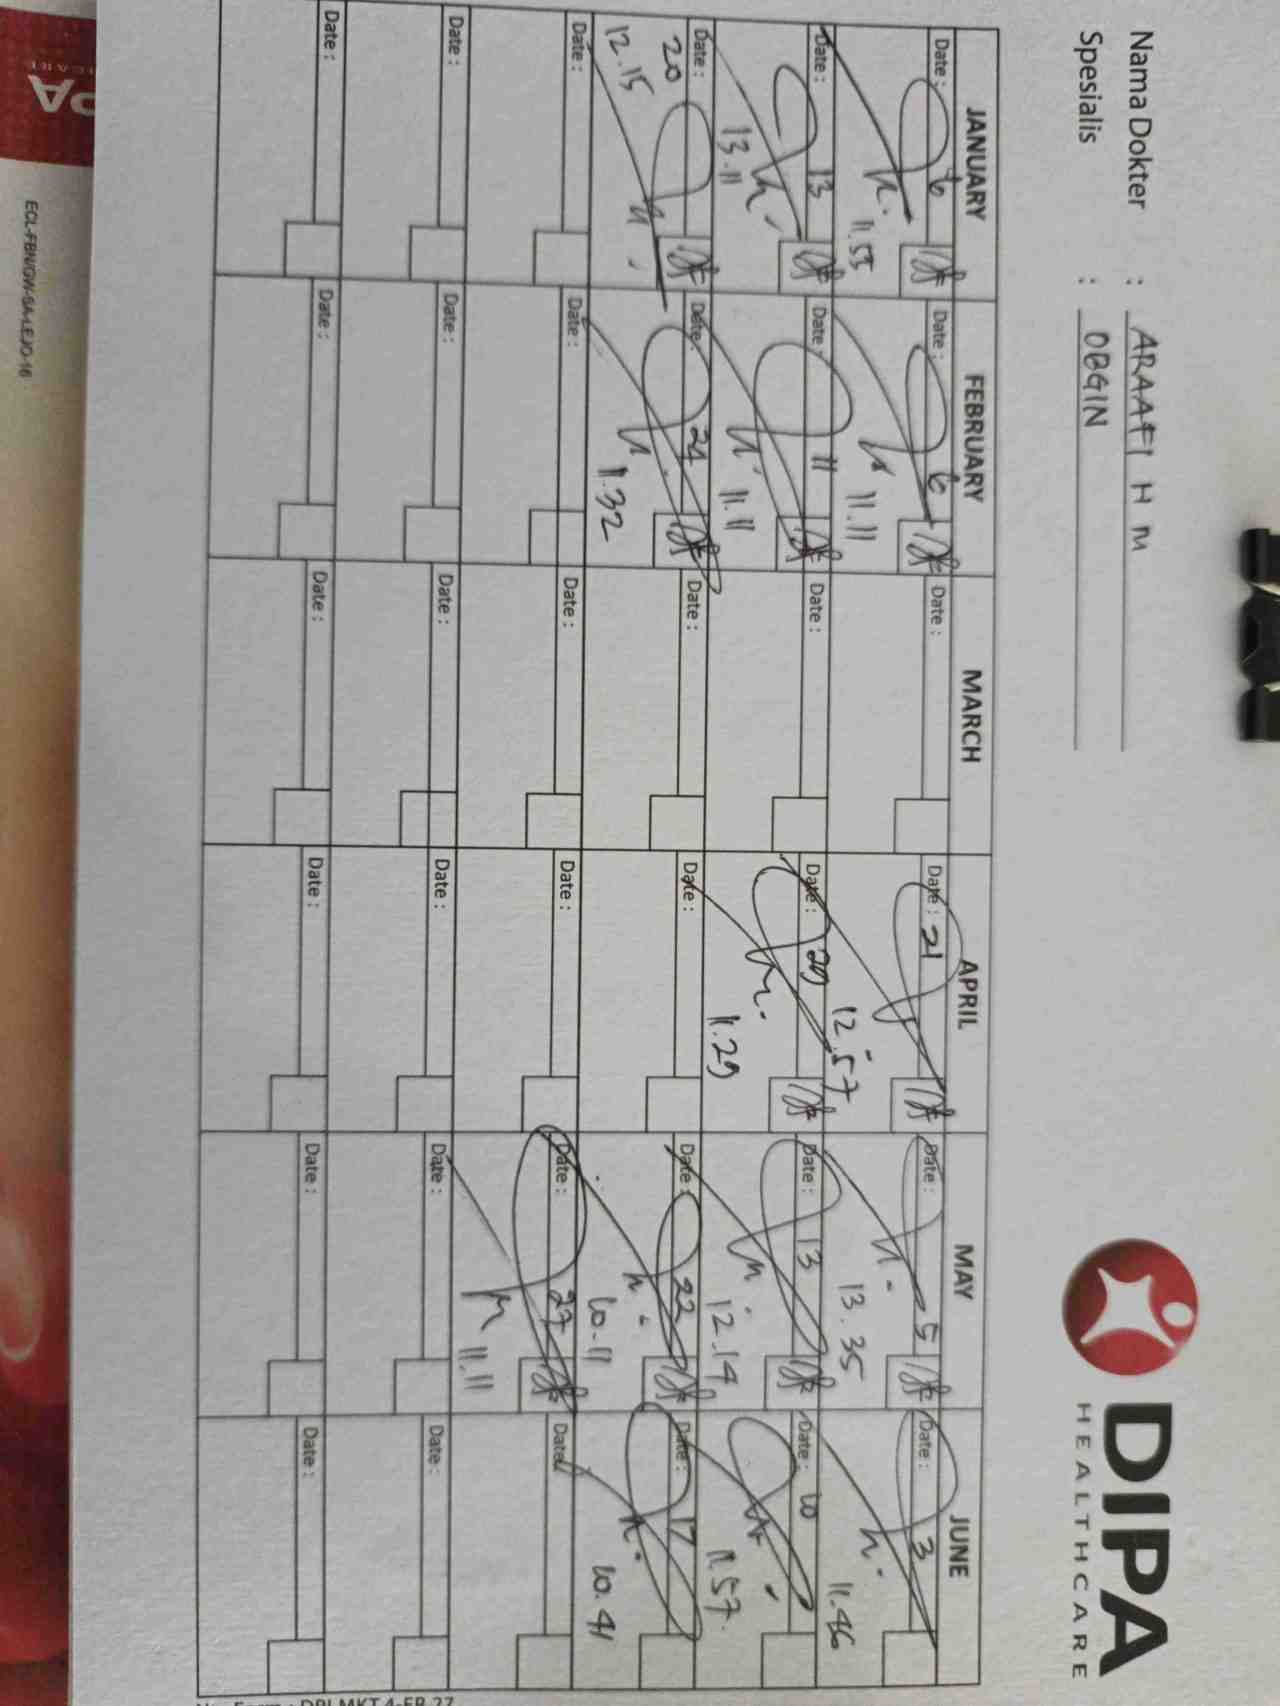 DIPA
HEALTHCARE
Nama Dokter : ARAAFI H M
Spesialis : OBGIN
JANUARY FEBRUARY MARCH APRIL MAY JUNE
Date : 6 Date : 6 Date : Date : 21 Date : 5 Date : 3
11.55 11.11 12.57 13.35 11.46
Date : 13 Date : 11 Date : Date : 29 Date : 13 Date : 10
13.11 11.11 11.29 12.14 11.57
Date : 20 Date : 24 Date : Date : Date : 22 Date : 17
12.15 11.32 10.11 10.41
Date : Date : Date : Date : Date : 27 Date :
11.11
Date : Date : Date : Date : Date : Date :
Date : Date : Date : Date : Date : Date :
ECL-FBN/GW-SA-LEJO-16